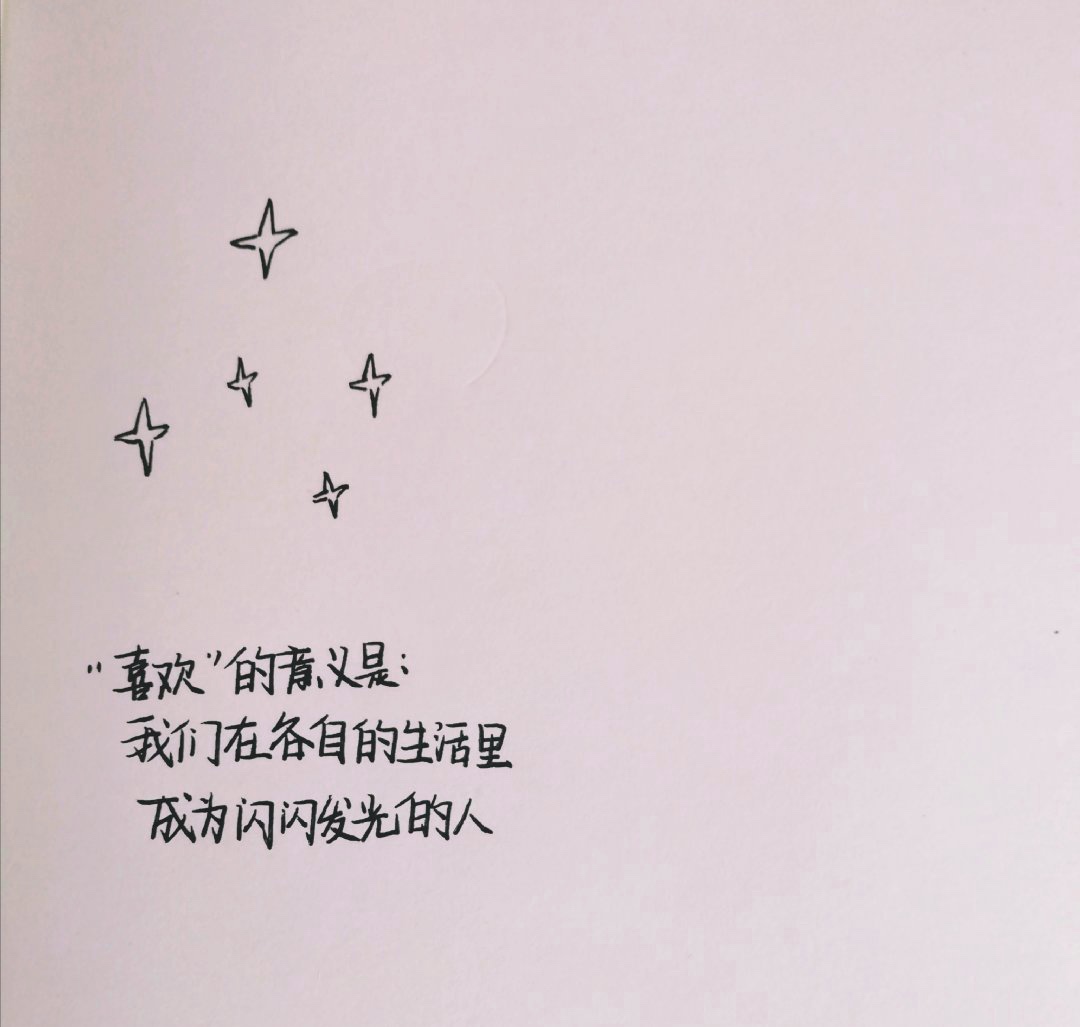 “喜欢”的意义是：
我们在各自的生活里
成为闪闪发光的人